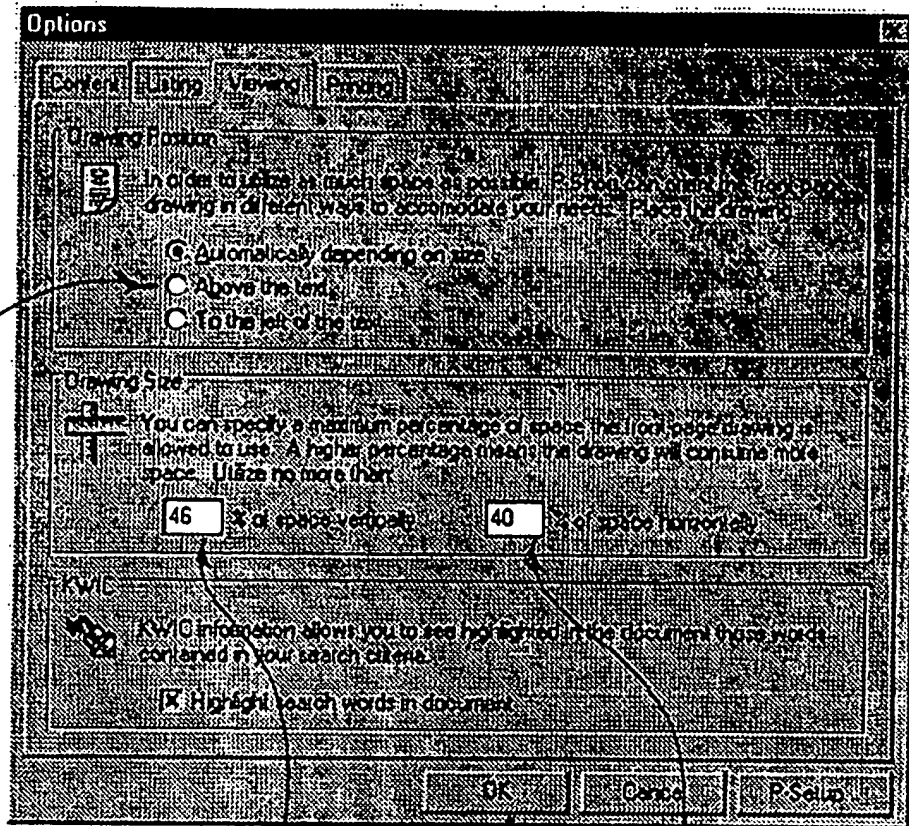 Options
Content Listing Viewing Printing
Drawing Position
In order to utilize as much space as possible, can orient the front page
drawing in different ways to accomodate your needs. Place the drawing
Automatically depending on size
Above the text
To the left of the text
Drawing Size
You can specify a maximum percentage of space the front page drawing is
allowed to use. A higher percentage means the drawing will consume more
space. Utilize no more than:
46 % of space vertically 40 % of space horizontally
KWIC
KWIC information allows you to see highlighted in the document those words
contained in your search criteria.
Highlight search words in document
OK Cancel P-Setup